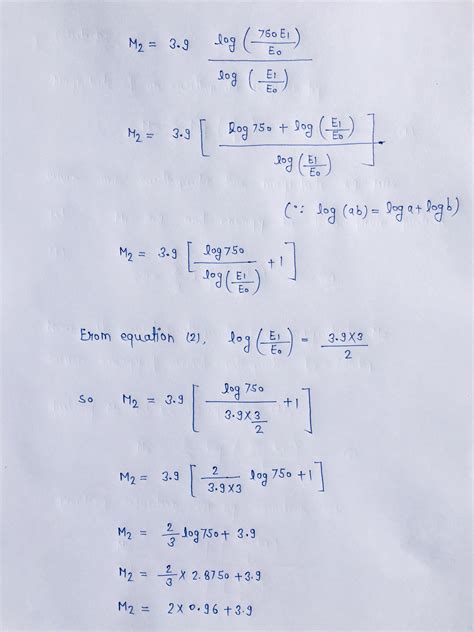 M₂ = 3.9 log (750 E₁ / E₀) / log (E₁ / E₀)
M₂ = 3.9 [ (log 750 + log (E₁ / E₀)) / log (E₁ / E₀) ]
(∵ log (ab) = log a + log b)
M₂ = 3.9 [ log 750 / log (E₁ / E₀) + 1 ]
From equation (2), log (E₁ / E₀) = 3.9×3 / 2
so M₂ = 3.9 [ log 750 / (3.9 × 3/2) + 1 ]
M₂ = 3.9 [ 2 / 3.9×3 log 750 + 1 ]
M₂ = 2/3 log 750 + 3.9
M₂ = 2/3 × 2.8750 + 3.9
M₂ = 2 × 0.96 + 3.9